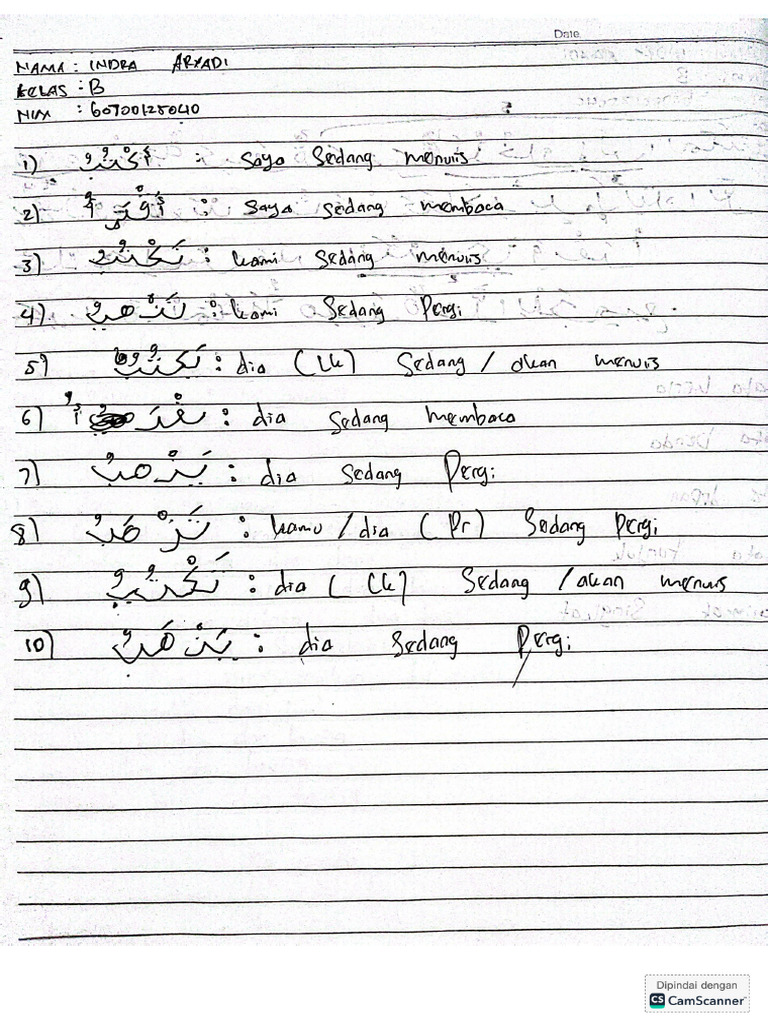 Date
NAMA : INDRA ARYADI
KELAS : B
NIM : 60700125040
1) أَكْتُبُ : saya sedang menulis
2) أَقْرَأُ : saya sedang membaca
3) نَكْتُبُ : kami sedang menulis
4) نَذْهَبُ : kami sedang pergi
5) يَكْتُبُ : dia (Lk) sedang / akan menulis
6) يَقْرَأُ : dia sedang membaca
7) يَذْهَبُ : dia sedang pergi
8) تَذْهَبُ : kamu / dia (Pr) sedang pergi
9) يَكْتُبُ : dia (Lk) sedang / akan menulis
10) يَذْهَبُ : dia sedang pergi
Dipindai dengan
CS CamScanner